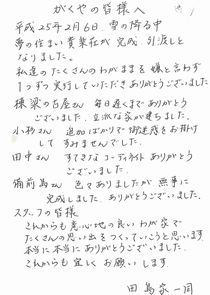 がくやの皆様へ
平成25年2月6日、雪の降る中
夢の住まい 完成、引渡しと
なりました。
私達のたくさんのわがままを嫌と言わず
1つずつ実行していただきありがとうございました。
棟梁の古屋さん 毎日遅くまでありがとう
ございました。立派な家が建ちました。
小 さん 追加ばかりで御迷惑をお掛け
してすみませんでした。
田中さん すてきなコーディネイトありがとう
ございました。
備前島さん 色々ありましたが無事に
完成しました。ありがとうございました。
スタッフの皆様
これからも居心地の良いわが家で
たくさんの思い出をつくっていこうと思います
本当に本当にありがとうございました。
これからも宜しくお願いします
田島家一同